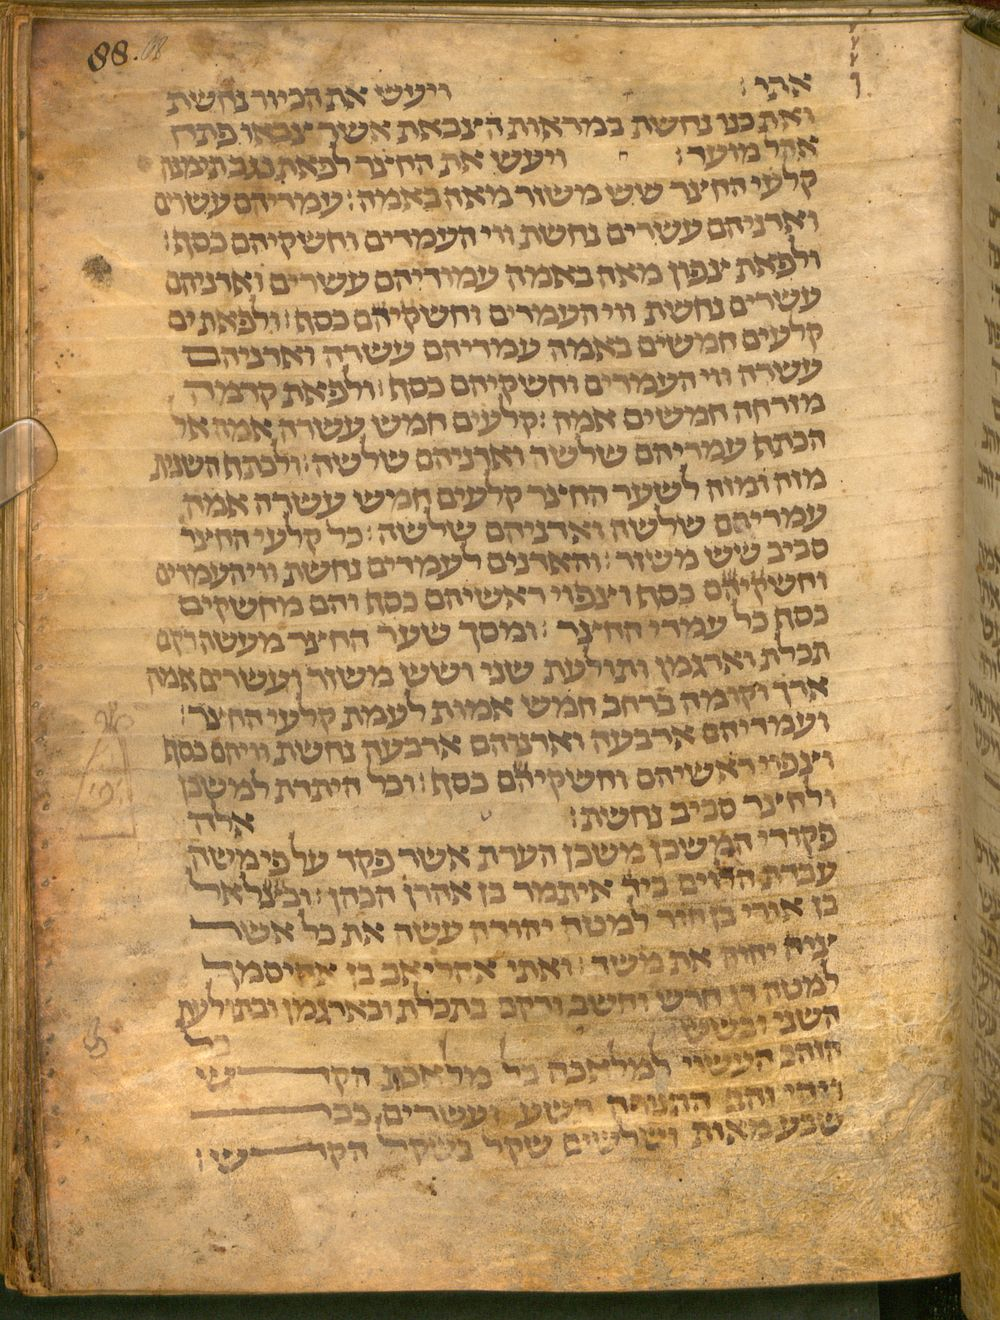 88. 
אתו : ויעש את הכיור נחשת
ואת כנו נחשת במראות הצבאת אשר צבאו פתח
אהל מועד : ויעש את החצר לפאת נגב תימנה
קלעי החצר שש משזר מאה באמה : עמודיהם עשרים
ואדניהם עשרים נחשת ווי העמדים וחשקיהם כסף :
ולפאת צפון מאה באמה עמודיהם עשרים ואדניהם
עשרים נחשת ווי העמודים וחשקיהם כסף : ולפאת ים
קלעים חמשים באמה עמודיהם עשרה ואדניהם
עשרה ווי העמדים וחשקיהם כסף : ולפאת קדמה
מזרחה חמשים אמה : קלעים חמש עשרה אמה אל
הכתף עמדיהם שלשה ואדניהם שלשה : ולכתף השנית
מזה ומזה לשער החצר קלעים חמש עשרה אמה
עמדיהם שלשה ואדניהם שלשה : כל קלעי החצר
סביב שש משזר : והאדנים לעמדים נחשת ווי העמודים
וחשקיהם כסף וצפוי ראשיהם כסף והם מחשקים
כסף כל עמדי החצר : ומסך שער החצר מעשה רקם
תכלת וארגמן ותולעת שני ושש משזר ועשרים אמה
ארך וקומה ברחב חמש אמות לעמת קלעי החצר :
ועמודיהם ארבעה ואדניהם ארבעה נחשת וויהם כסף
וצפוי ראשיהם וחשקיהם כסף : וכל היתדת למשכן
ולחצר סביב נחשת : אלה
פקודי המשכן משכן העדת אשר פקד על פי משה
עבדת הלוים ביד איתמר בן אהרן הכהן : ובצלאל
בן אורי בן חור למטה יהודה עשה את כל אשר
צוה יהוה את משה : ואתו אהליאב בן אחיסמך
למטה דן חרש וחשב ורקם בתכלת ובארגמן ובתולעת
השני ובשש כל
הזהב העשוי למלאכה בכל מלאכת הקדש
ויהי זהב התנופה תשע ועשרים ככר
שבע מאות ושלשים שקל בשקל הקדש :